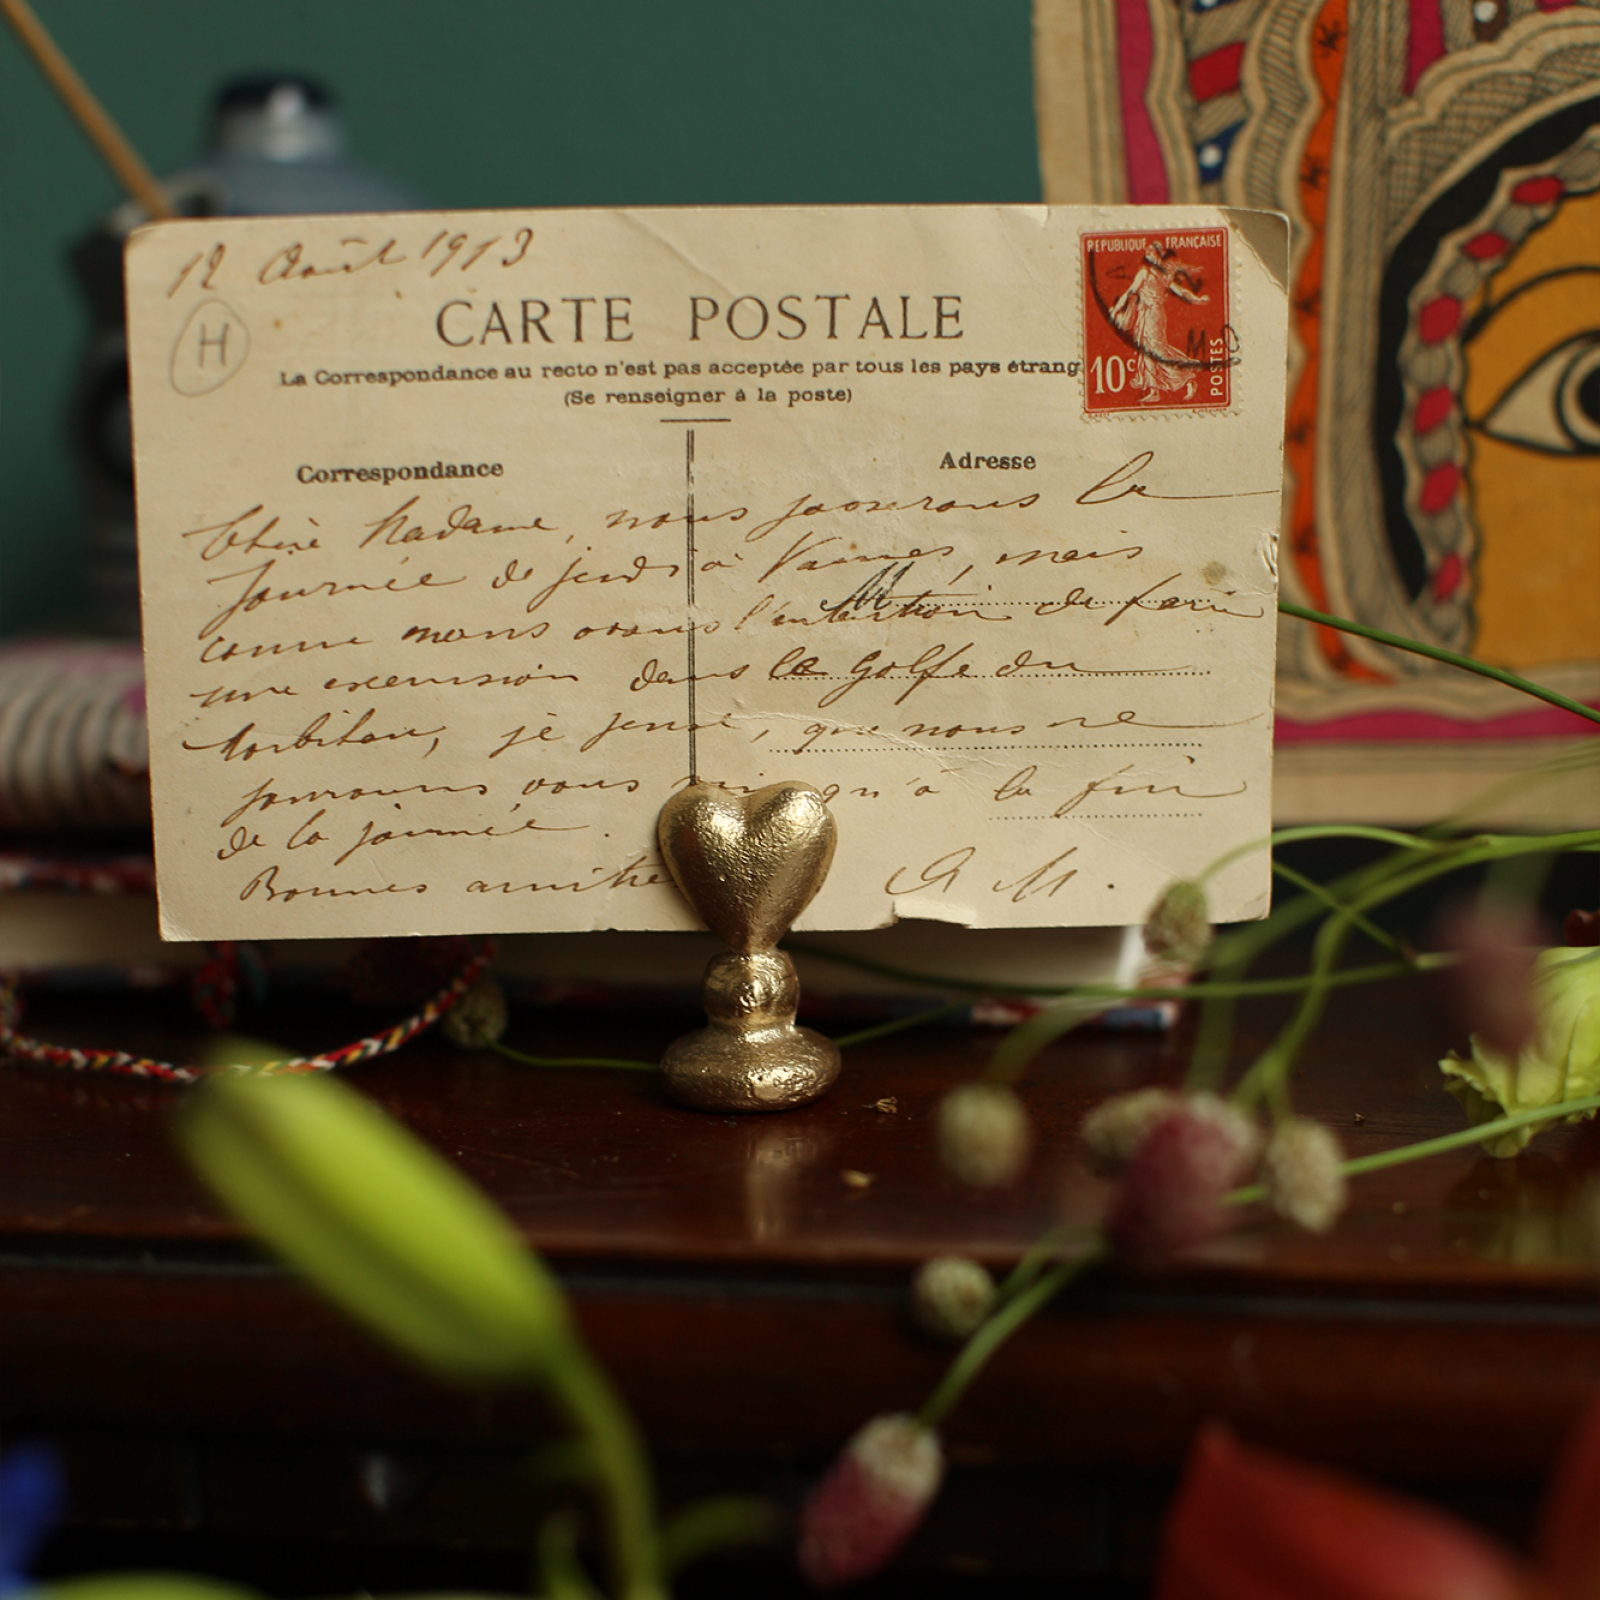 12 Août 1913
H
CARTE POSTALE
La Correspondance au recto n'est pas acceptée par tous les pays étrang
(Se renseigner à la poste)
REPUBLIQUE FRANÇAISE
10c
POSTES
Correspondance
Adresse
Chère Madame, nous passerons la
journée de jeudi à Vannes, mais
comme nous avons l'intention de faire
une excursion dans le Golfe du
Morbihan, je pense, que nous ne
pourrons vous qu'à la fin
de la journée.
Bonnes amitié
A M.